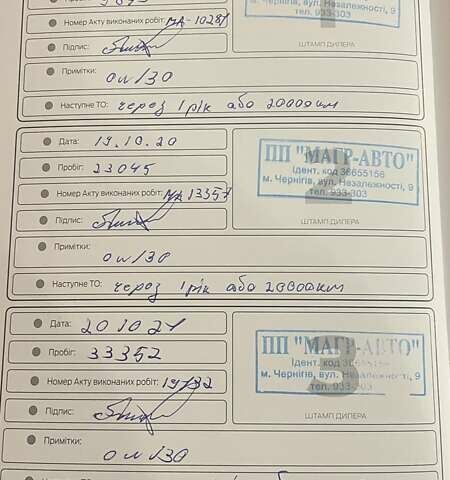 Номер Акту виконаних робіт: МА-10281
вул. Незалежності, 9
тел. 933-303
Підпис:
ШТАМП ДИЛЕРА
Примітки: ОИ/30
Наступне ТО: через 1 рік або 20000 км
Дата: 19.10.20
Пробіг: 23045
Номер Акту виконаних робіт: МА 13357
Підпис:
ПП "МАГР-АВТО"
Ідент. код 36655156
м. Чернігів, вул. Незалежності, 9
тел. 933-303
2
ШТАМП ДИЛЕРА
Примітки:
ОИ/30
Наступне ТО: через 1 рік або 20000 км
Дата: 20.10.21
Пробіг: 33352
Номер Акту виконаних робіт:
Підпис:
ПП "МАГР-АВТО"
Ідент. код 36655156
м. Чернігів, вул. Незалежності, 9
тел. 933-303
ШТАМП ДИЛЕРА
Примітки:
ОИ/30